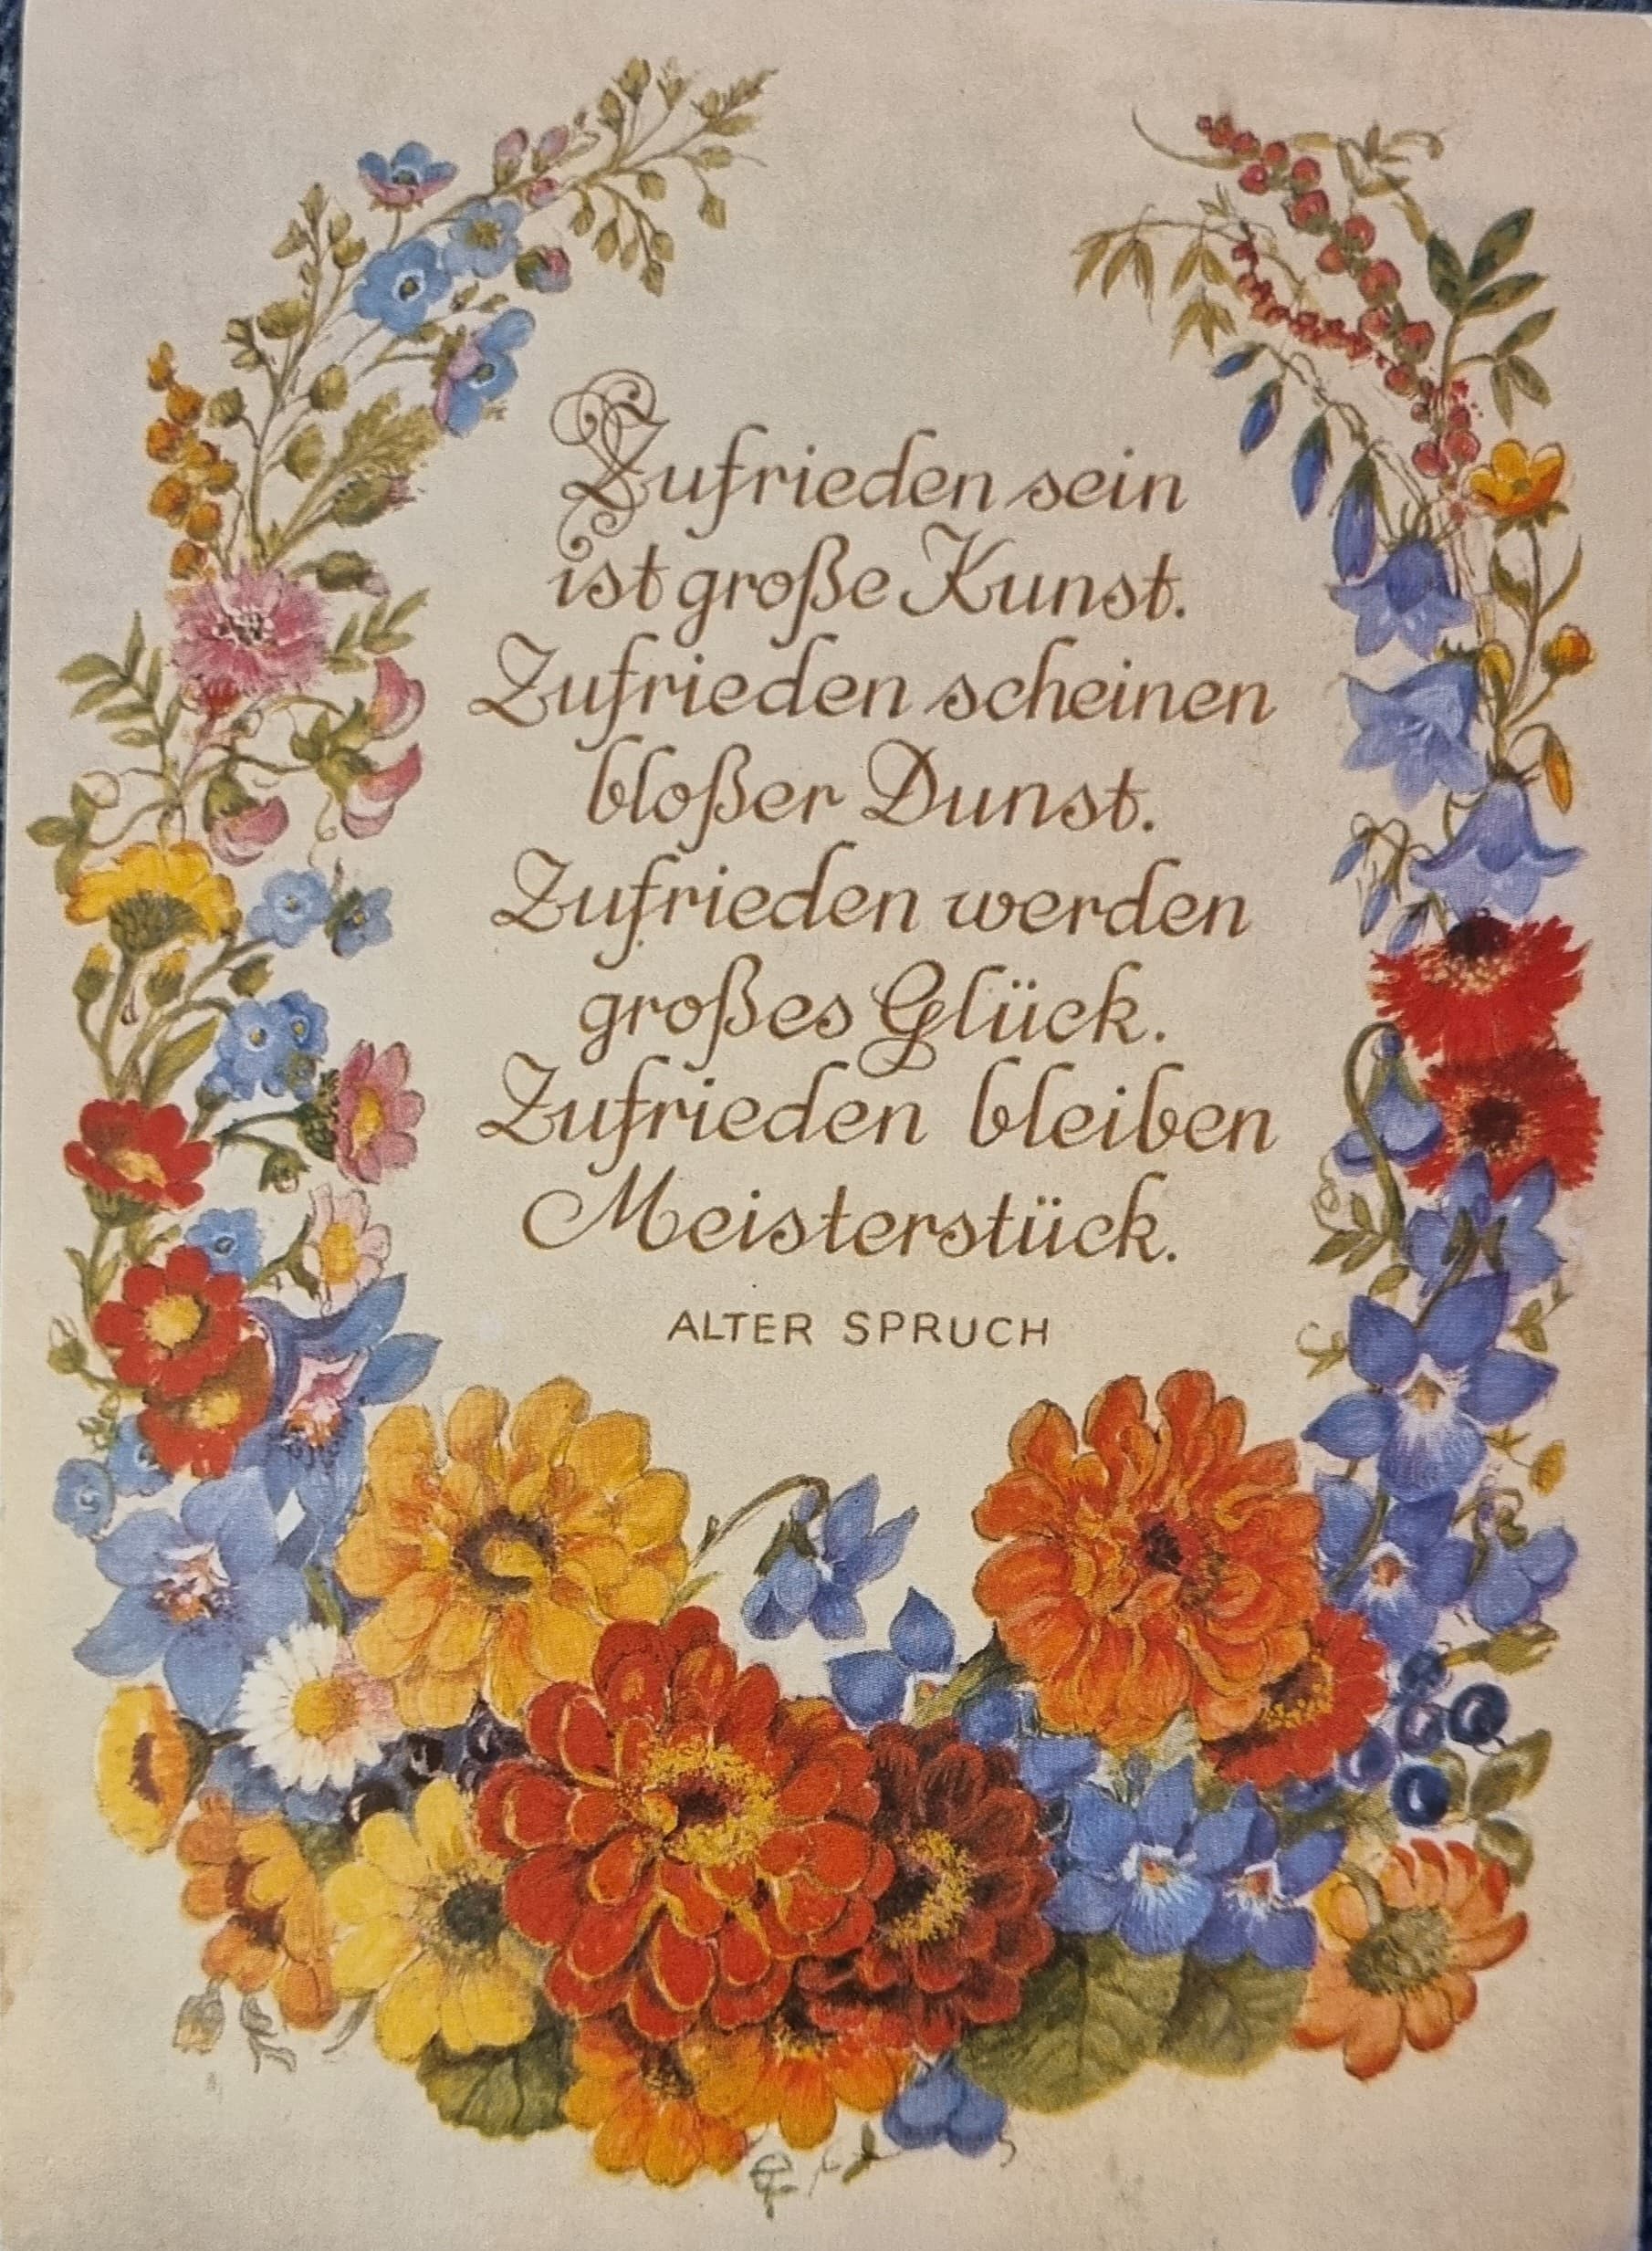 Zufrieden sein
ist große Kunst.
Zufrieden scheinen
bloßer Dunst.
Zufrieden werden
großes Glück.
Zufrieden bleiben
Meisterstück.
ALTER SPRUCH